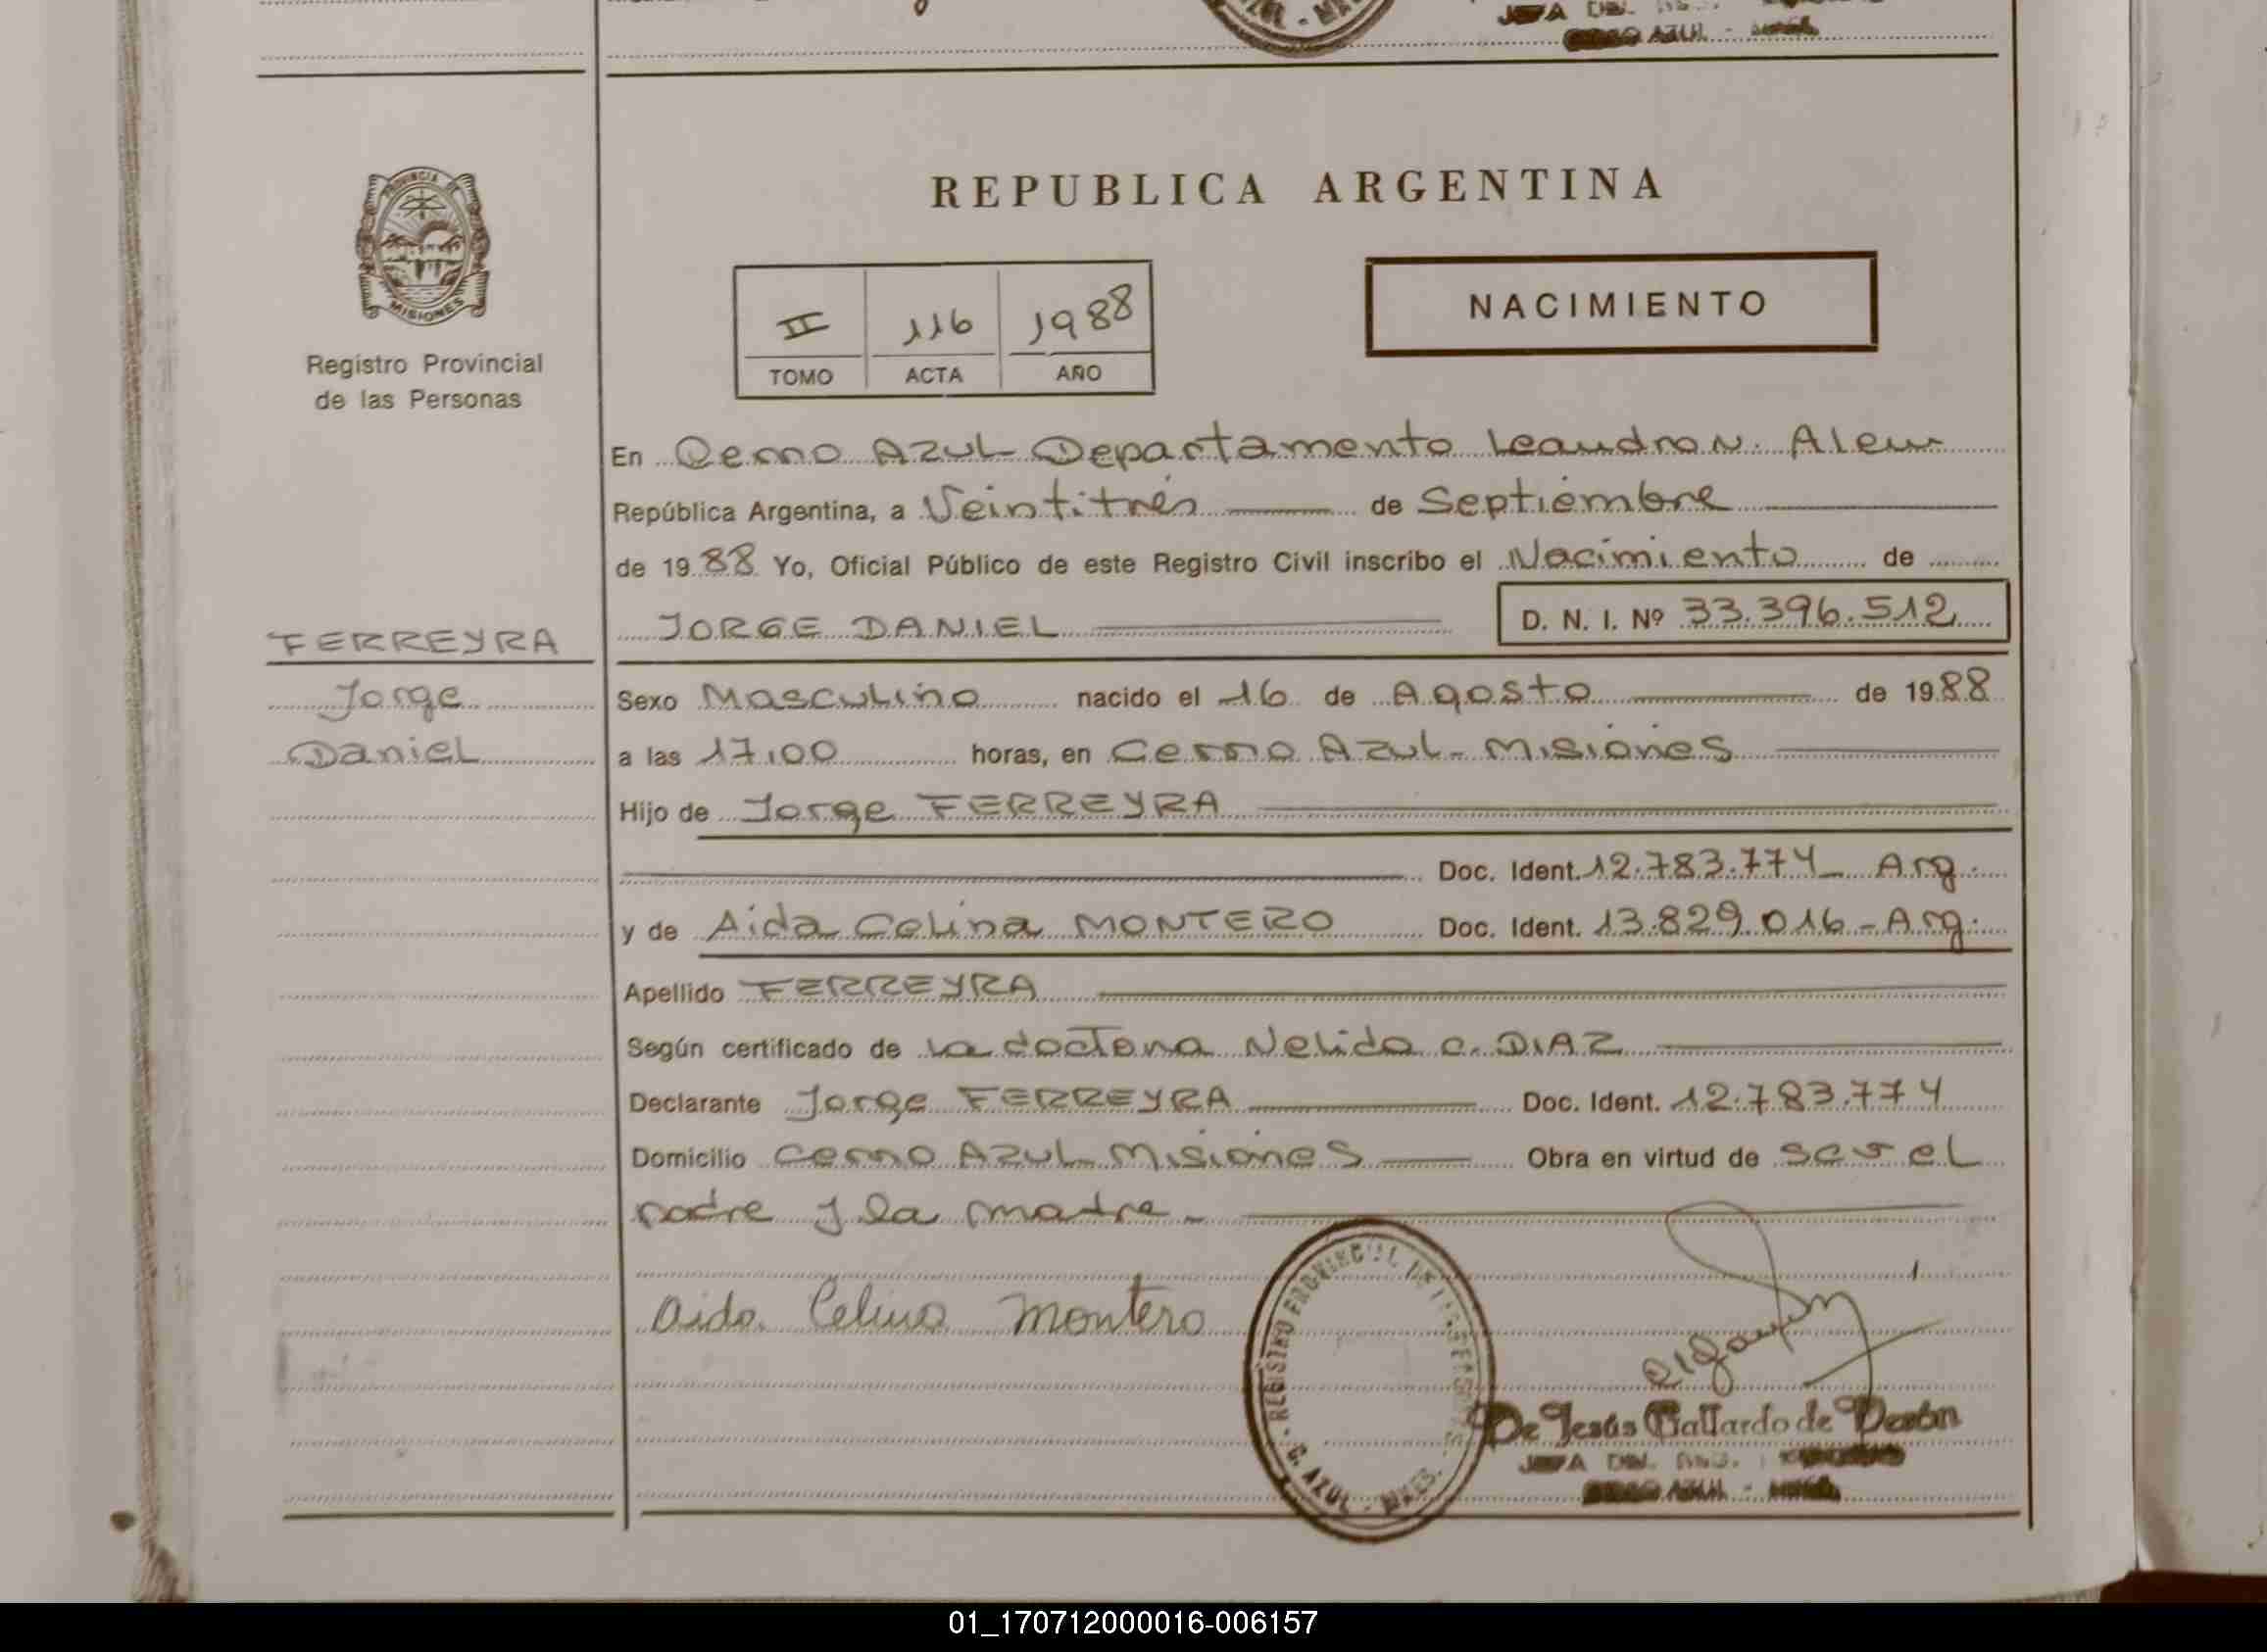 AZUL - 
JEFA DEL
AZUL -
PROVINCIA DE
MISIONES
Registro Provincial
de las Personas
REPUBLICA ARGENTINA
II 116 1988
TOMO ACTA AÑO
NACIMIENTO
En Cerro AZUL Departamento Leandro N. Alem
República Argentina, a Veintitrés de Septiembre
de 1988 Yo, Oficial Público de este Registro Civil inscribo el Nacimiento de
FERREYRA
JORGE DANIEL
D. N. I. Nº 33.396.512
Jorge
Sexo Masculino nacido el 16 de Agosto de 1988
Daniel
a las 17,00 horas, en Cerro Azul - Misiones
Hijo de Jorge FERREYRA
Doc. Ident. 12.783.774 - Arg.
y de Aida Celina MONTERO Doc. Ident. 13.829.016 - Arg.
Apellido FERREYRA
Según certificado de la doctora Nelida C. DIAZ
Declarante Jorge FERREYRA Doc. Ident. 12.783.774
Domicilio Cerro Azul Misiones Obra en virtud de ser el
padre y la madre.
Aida Celina Montero
REGISTRO PROVINCIAL DE LAS PERSONAS
C. AZUL - MNES.
De Jesús Gallardo de
JEFA DEL REG.
AZUL -
01_170712000016-006157